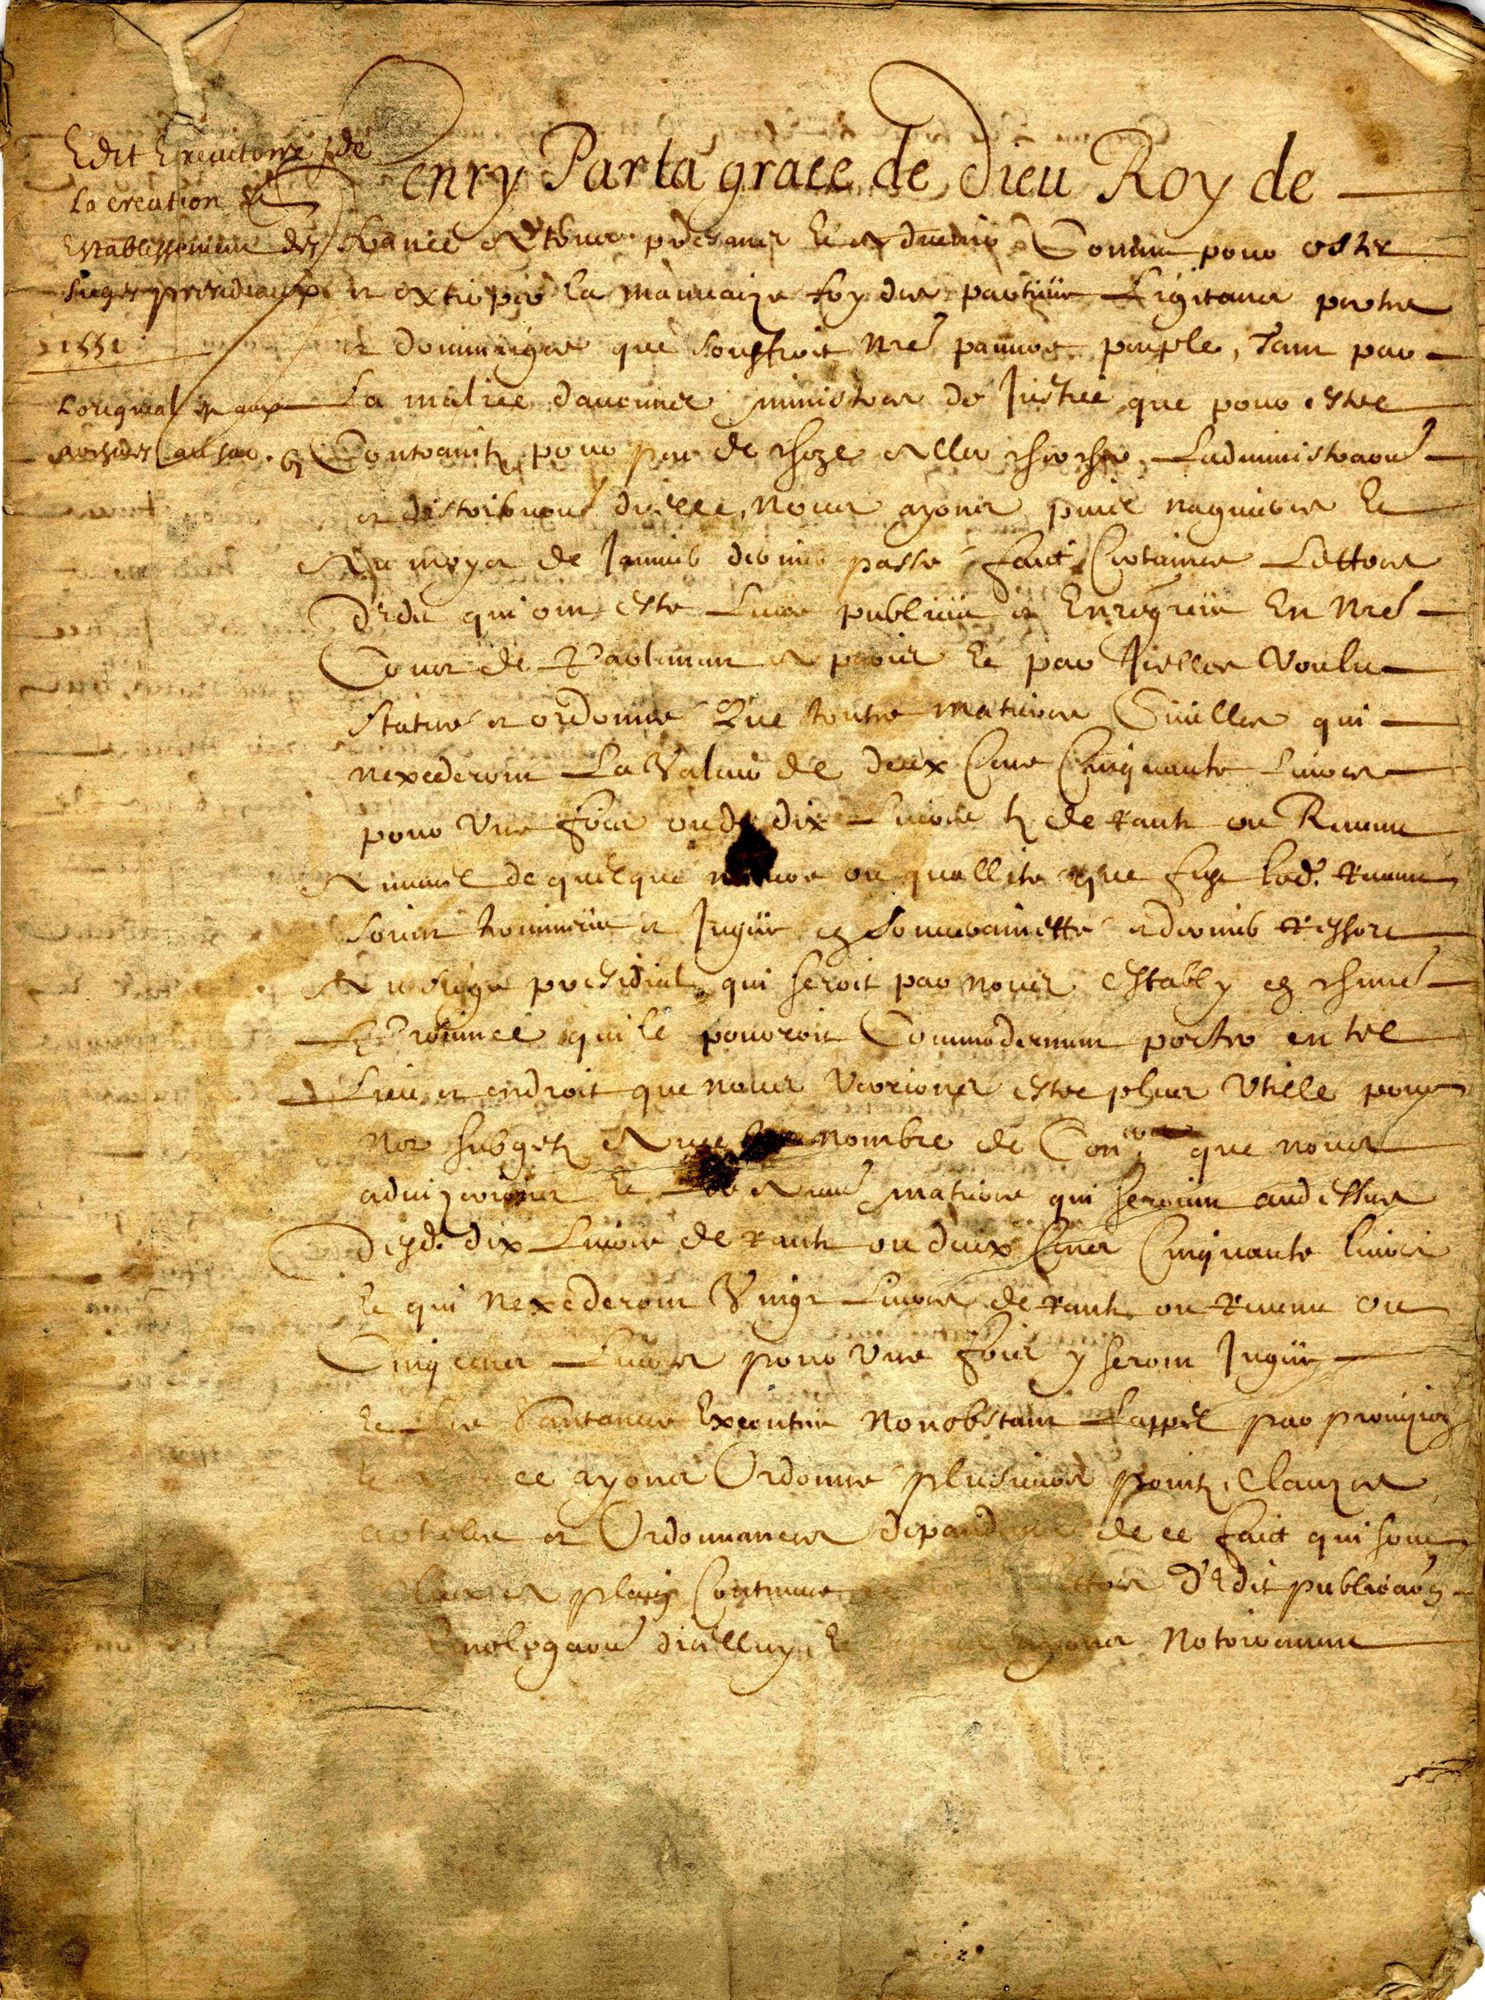 Edit Executoire de
La creation &
Establissement des
sieges presidiaux
1551
Loriginal est aux
archives
Henry Par la grace de Dieu Roy de
France A tous presans Et Advenir Comme pour oster
et extirper la mauvaize foy des parties Litigans pertes
et dommaiges que souffroit nre pauvre peuple, Tant par
La malice d'aucunes ministres de Justice que pour estre
Contraintz pour peu de choze Aller chercher Ladministraon
et distribuon dicelle, Nous ayons puis naguieres Et
Au moys de Janvier dernier passé faict Certaines Lettres
D'edit qui ont esté Leues publiees et Enregistrees En nre
Cour de Parlement A paris Et par Icelles Voulu
Statué et ordonné Que toutes matieres Civilles qui
nexcederont La Valeur de deux Cens Cinquante Livres
pour Une fois ou de dix Livres tz de rante ou Revenu
Annuel de quelque nature ou quallité que fust Led. Revenu
soient terminees et Jugees en Souverainetté et dernier Ressort
Au siege presidial qui seroit par nous estably en chune
Province qui le pouroit Commodement porter en tel
Lieu et endroit que nous Verrions estre plus Utille pour
Nos subgetz Avec nombre de Con.ers que nous
advizerions Et Les Aues matieres qui seroient audessus
Desd. dix Livres de rante ou deux Cens Cinquante livres
Et qui Nexcederont Vingt Livres de rante ou Revenu ou
Cinq cens Livres pour Une fois y seront Jugees
Et Les Santances Executees Nonobstant Lappel par provizion
Et ce ayons Ordonné plusieurs pointz Clauzes
articles et Ordonnances depandens de ce faict qui sont
plus A plain Contenues Lettres D'edit publicaon
Emologaon dicelluy Et ayons Notoirement